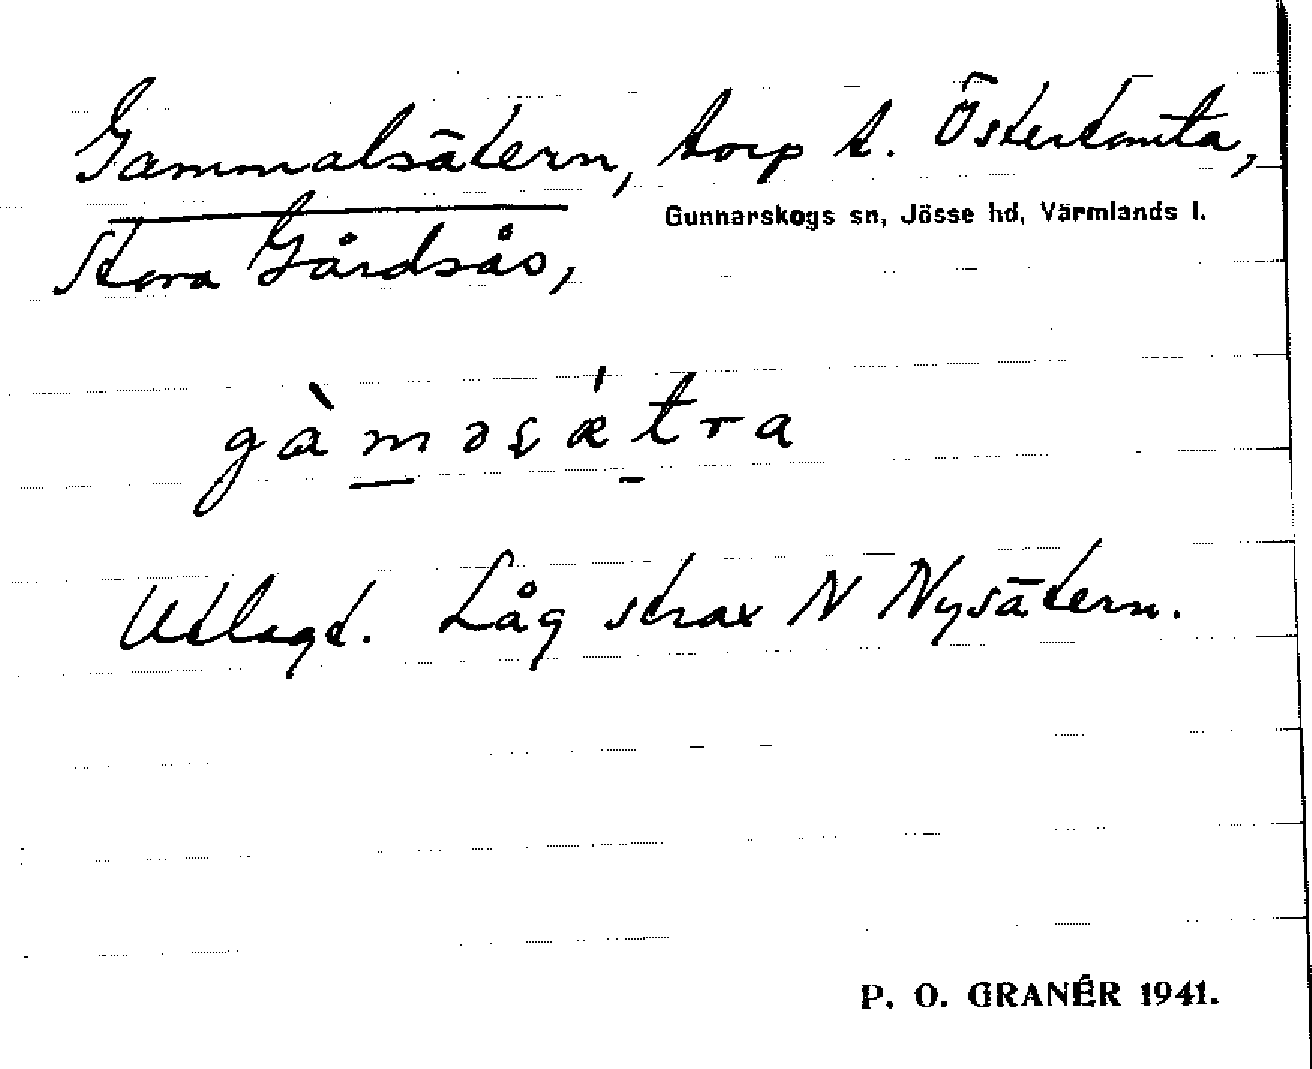 Gammalsätern, torp t. Östertomta,
Gunnarskogs sn, Jösse hd, Värmlands l.
Stora Gårdsås,
gàməsǽtra
Utlagd. Låg strax N Nysätern.
P. O. GRANÉR 1941.